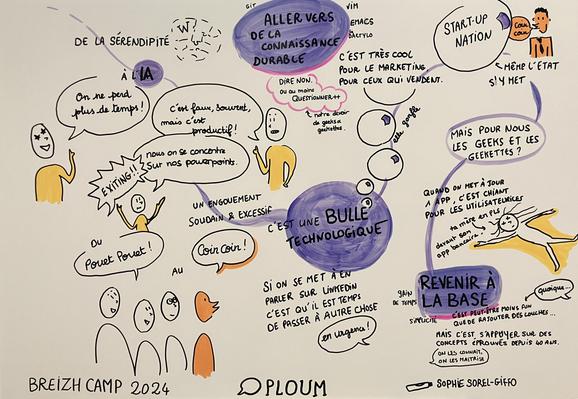 DE LA SÉRENDIPITÉ
À L'IA
On ne perd
plus de temps !
C'est faux, souvent,
mais c'est
productif !
nous on se concentre
Sur nos powerpoints.
EXITING !!
OU
Pouet Pouet !
UN ENGOUEMENT
SOUDAIN & EXCESSIF
AU
Coin Coin !
GIT
VIM
EMACS
ALLER VERS
DE LA
CONNAISSANCE
DURABLE
C'EST TRÈS COOL
POUR LE MARKETING
POUR CEUX QUI VENDENT.
DIRE NON.
OU au moins
QUESTIONNER++
↳ notre devoir
de geeks &
geekettes.
START-UP
NATION
COIN
COIN
MÊME L'ETAT
S'Y MET
MAIS POUR NOUS
LES GEEKS ET LES
GEEKETTES ?
C'EST UNE BULLE
TECHNOLOGIQUE
SI ON SE MET À EN
PARLER SUR LINKEDIN
C'EST QU'IL EST TEMPS
DE PASSER À AUTRE CHOSE
en Urgence !
QUAND ON MET À JOUR
1 APP, C'EST CHIANT
POUR LES UTILISATRICES
ta mère en PLS
devant son
app bancaire.
REVENIR À
LA BASE
GAIN
DE TEMPS
SIMPLICITÉ
quoique...
C'EST PEUT-ÊTRE MOINS FUN
QUE DE RAJOUTER DES COUCHES...
MAIS C'EST S'APPUYER SUR DES
CONCEPTS ÉPROUVÉS DEPUIS 40 ANS.
ON LES CONNAIT,
ON LES MAITRISE
BREIZH CAMP 2024
PLOUM
SOPHIE SOREL-GIFFO